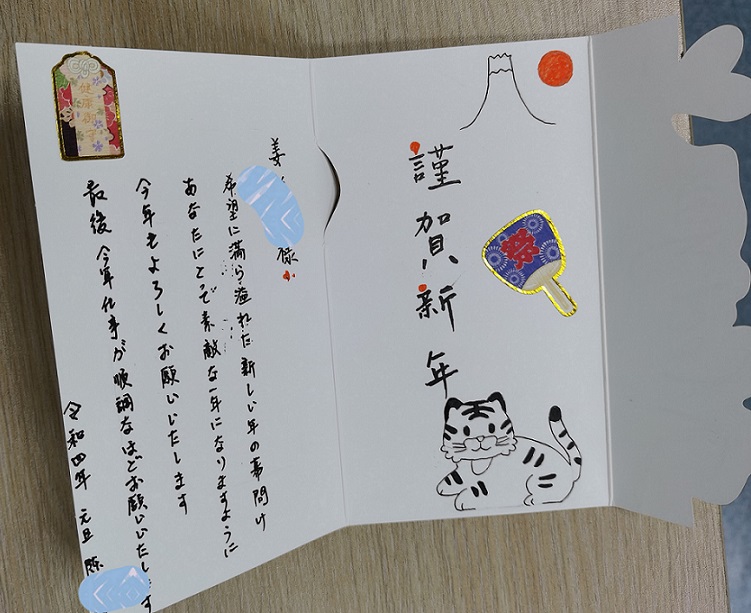 謹賀新年
祭
姜 様
希望に満ち溢れた新しい年の幕開け
あなたにとって素敵な一年になりますように
今年もよろしくお願いいたします
最後 今年仕事が順調なほどお願いいたします
令和四年 元旦 陈
健康御守